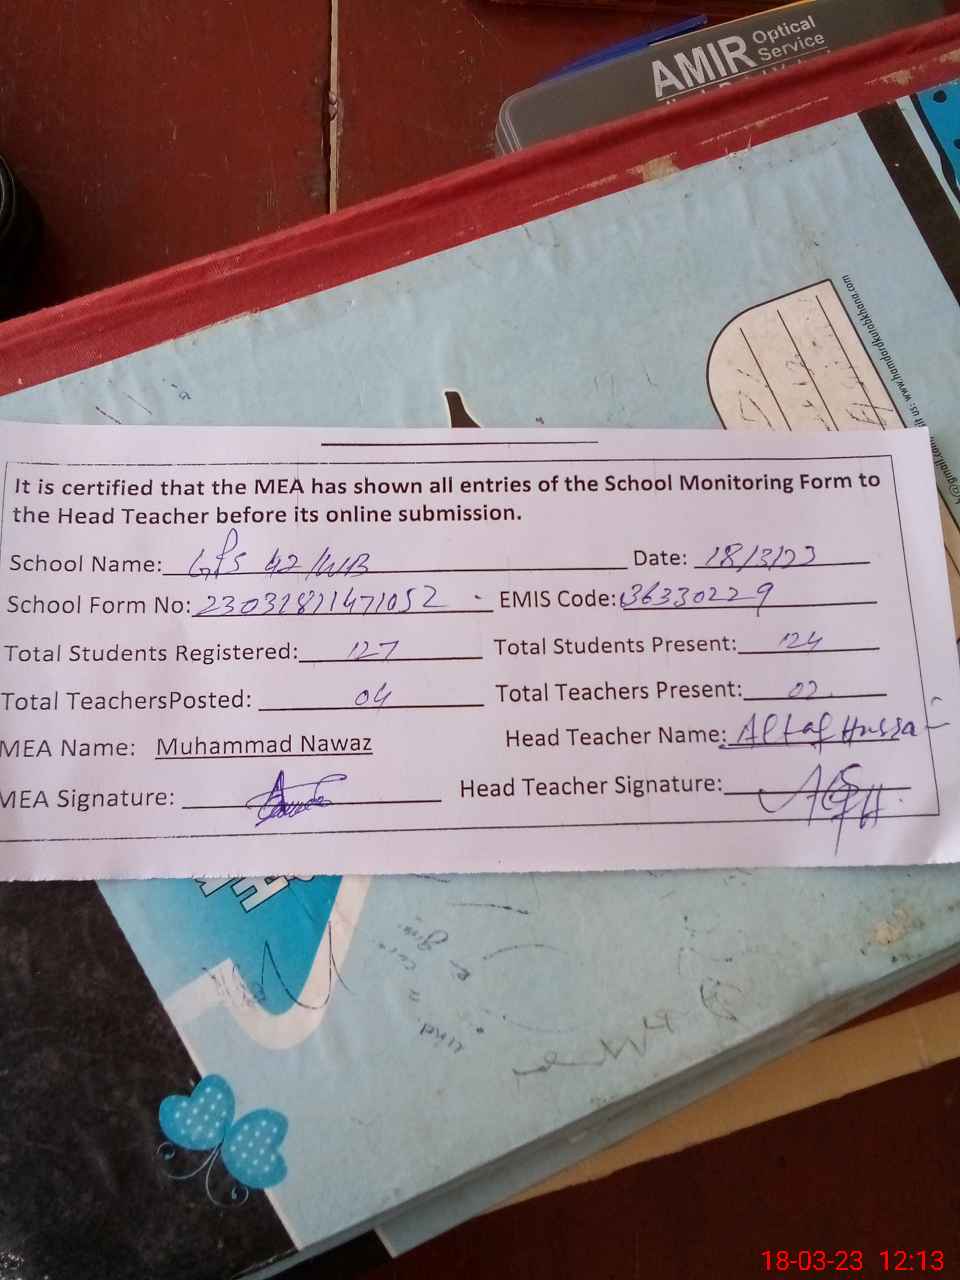 AMIR Optical Service
it us: www.hamdardkutabkhana.com
It is certified that the MEA has shown all entries of the School Monitoring Form to
the Head Teacher before its online submission.
School Name: GPS 42/WB Date: 18/3/23
School Form No: EMIS Code: 36330229
Total Students Registered: 127 Total Students Present: 124
Total TeachersPosted: 04 Total Teachers Present: 02
MEA Name: Muhammad Nawaz Head Teacher Name: Altaf Hussain
MEA Signature: Head Teacher Signature:
18-03-23 12:13